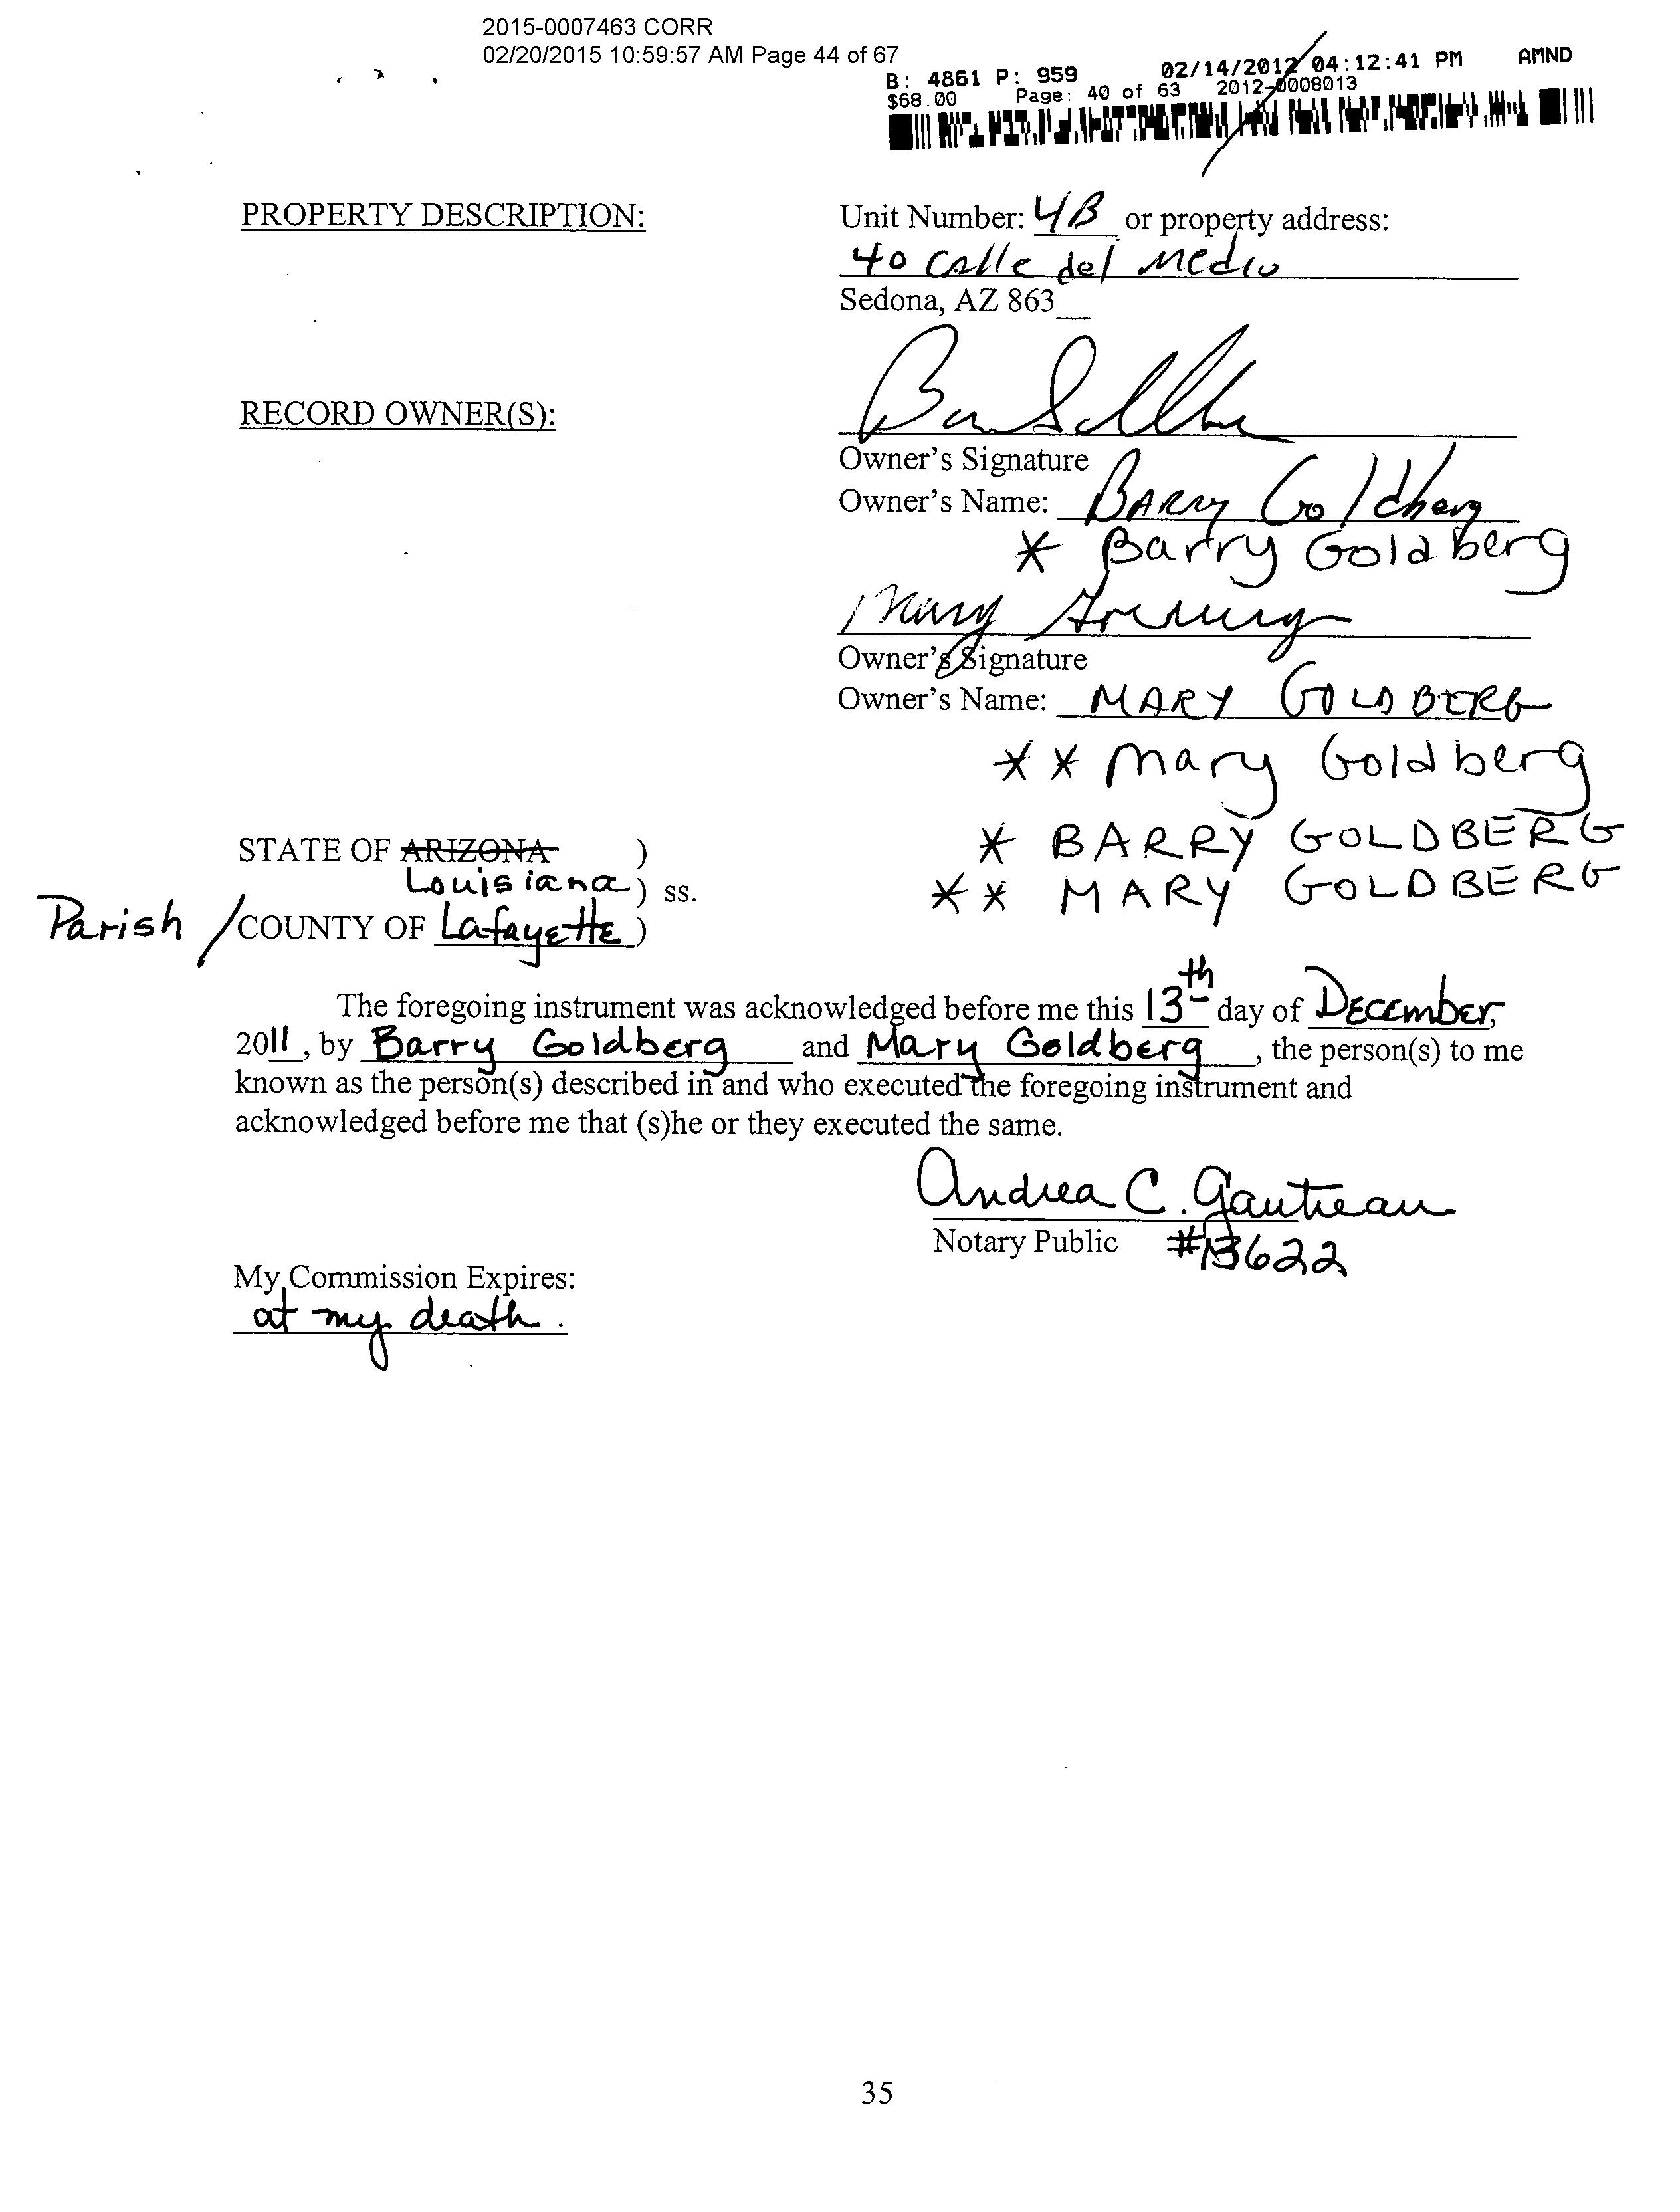 2015-0007463 CORR
02/20/2015 10:59:57 AM Page 44 of 67
B: 4861 P: 959 02/14/2012 04:12:41 PM AMND
$68.00 Page: 40 of 63 2012-0008013
PROPERTY DESCRIPTION:
Unit Number: 4B or property address:
40 Calle del Medio
Sedona, AZ 863__
RECORD OWNER(S):
Owner's Signature
Owner's Name: BARRY Goldberg
* Barry Goldberg
Mary
Owner's Signature
Owner's Name: MARY GOLDBERG
** Mary Goldberg
* BARRY GOLDBERG
** MARY GOLDBERG
STATE OF ARIZONA )
Louisiana ) ss.
Parish / COUNTY OF Lafayette )
The foregoing instrument was acknowledged before me this 13th day of December,
2011, by Barry Goldberg and Mary Goldberg, the person(s) to me
known as the person(s) described in and who executed the foregoing instrument and
acknowledged before me that (s)he or they executed the same.
Andrea C. Gautreau
Notary Public #13622
My Commission Expires:
at my death.
35